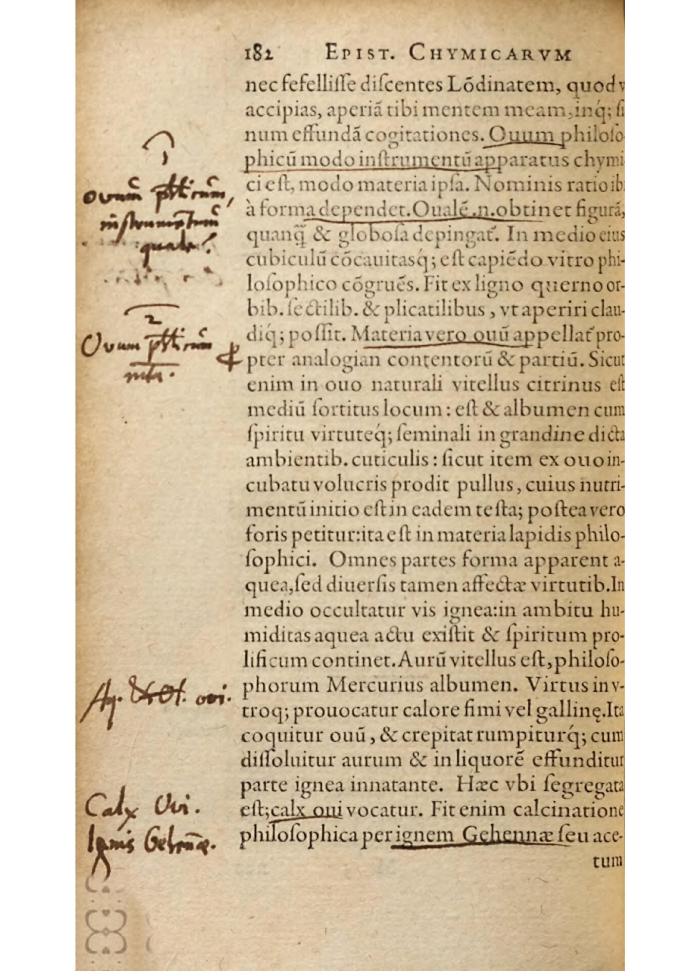 182 EPIST. CHYMICARVM
nec fefelliſſe diſcentes Lõdinatem, quod v
accipias, aperiã tibi mentem meam, inq́; ſi
num effundã cogitationes. Ouum philoſo
phicũ modo inſtrumentũ apparatus chymi
ci eſt, modo materia ipſa. Nominis ratio ib
à forma dependet. Oualẽ.n. obtinet figurã,
quanq̃ & globoſa depingat̃. In medio eius
cubiculũ cõcauitasq́; eſt capiẽdo vitro phi-
loſophico cõgruẽs. Fit ex ligno querno or-
bib. ſectilib. & plicatilibus, vt aperiri clau-
diq́; poſſit. Materia vero ouũ appellat̃ pro-
pter analogian contentorũ & partiũ. Sicut
enim in ouo naturali vitellus citrinus eſt
mediũ ſortitus locum: eſt & albumen cum
ſpiritu virtuteq́; ſeminali in grandine dicta
ambientib. cuticulis: ſicut item ex ouo in-
cubatu volucris prodit pullus, cuius nutri-
mentũ initio eſt in eadem teſta; poſtea vero
foris petitur: ita eſt in materia lapidis philo-
ſophici. Omnes partes forma apparent a-
quea, ſed diuerſis tamen affectæ virtutib. In
medio occultatur vis ignea: in ambitu hu-
miditas aquea actu exiſtit & ſpiritum pro-
lificum continet. Aurũ vitellus eſt, philoſo-
phorum Mercurius albumen. Virtus in v-
troq; prouocatur calore fimi vel gallinę. Ita
coquitur ouũ, & crepitat rumpiturq́; cum
diſſoluitur aurum & in liquorẽ effunditur
parte ignea innatante. Hæc vbi ſegregata
eſt; calx oui vocatur. Fit enim calcinatione
philoſophica per ignem Gehennæ ſeu ace-
tum
1
ovum
instrumentum
quale?
2
Ovum
Aq. ovi.
Calx Ovi.
Ignis Gehennæ.